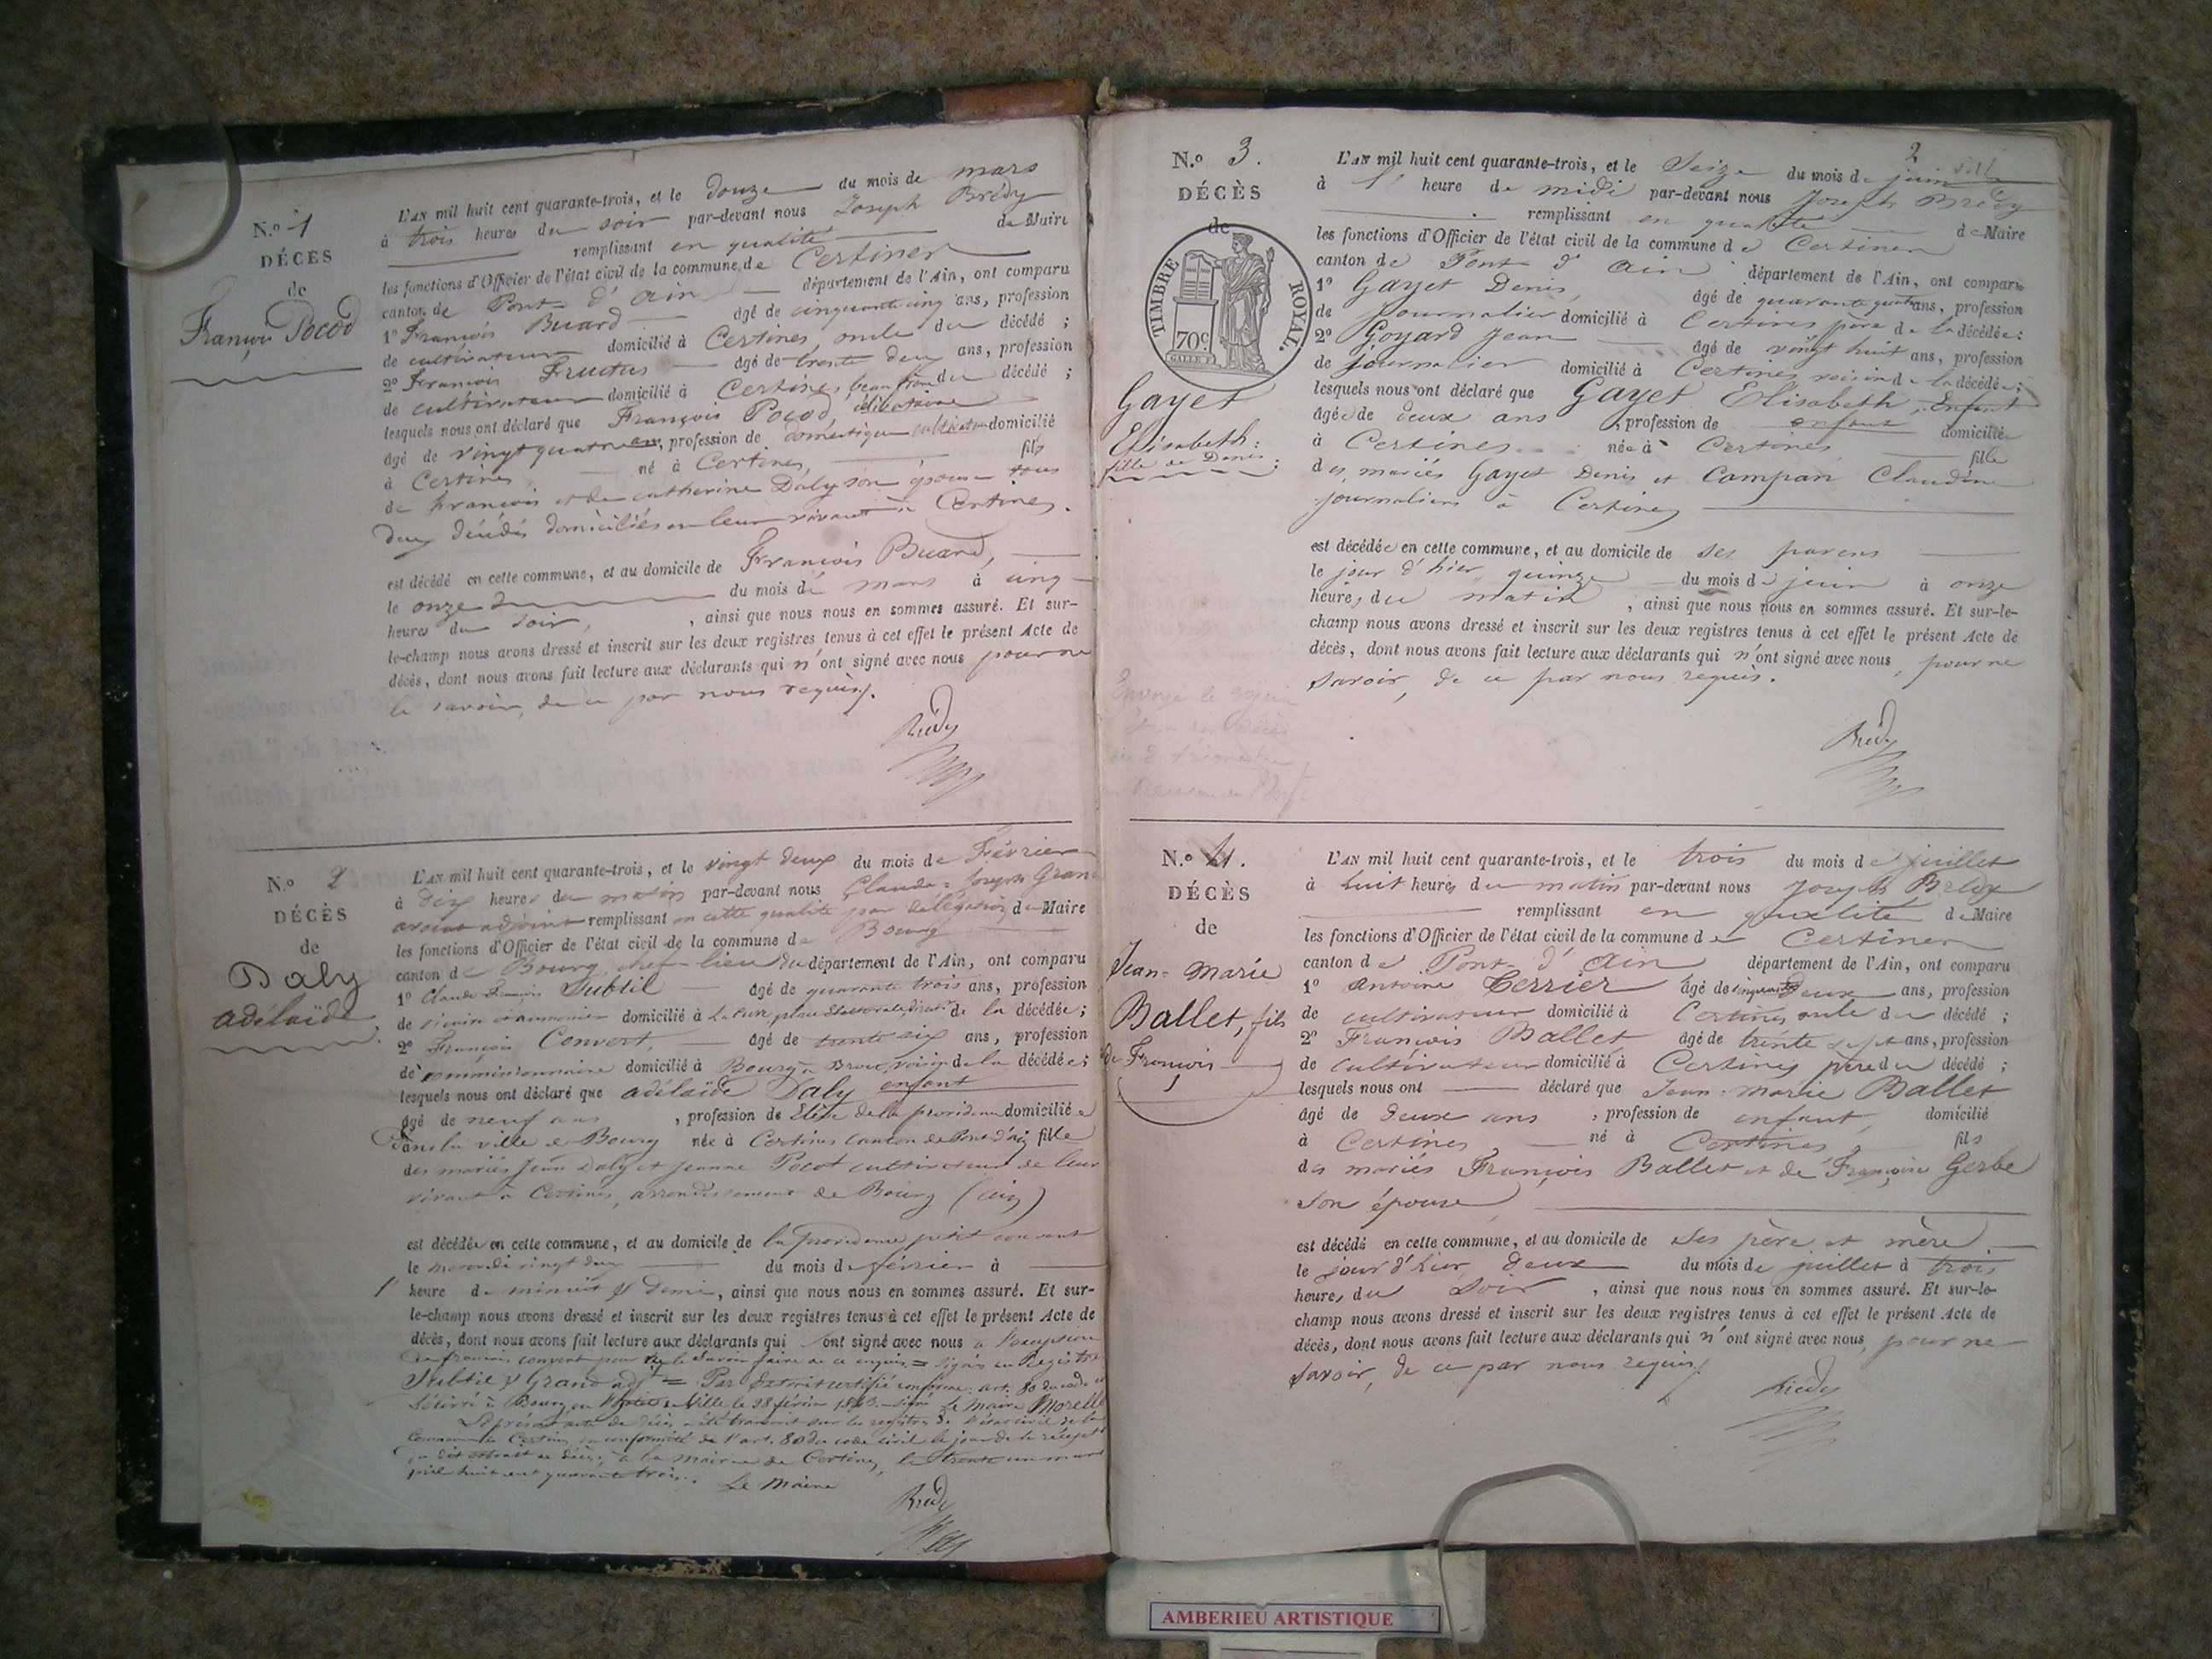 N.º 1
DÉCÈS
de
François Pocod
L'AN mil huit cent quarante-trois, et le douze du mois de mars
à trois heures du soir par-devant nous Joseph Brédy
remplissant en qualité de Maire
les fonctions d'Officier de l'état civil de la commune de Certines
canton de Pont d'ain département de l'Ain, ont comparu
1º François Buard âgé de cinquante cinq ans, profession
de cultivateur domicilié à Certines, oncle du décédé ;
2º François Fructus âgé de trente deux ans, profession
de cultivateur domicilié à Certines, beau frère du décédé ;
lesquels nous ont déclaré que François Pocod, célibataire
âgé de vingt quatre ans, profession de domestique cultivateur domicilié
à Certines, né à Certines, fils
de François et de Catherine Daly son épouse tous
deux décédés domiciliés en leur vivant à Certines.
est décédé en cette commune, et au domicile de François Buard,
le onze du mois de mars à cinq
heures du soir, , ainsi que nous nous en sommes assuré. Et sur-
le-champ nous avons dressé et inscrit sur les deux registres tenus à cet effet le présent Acte de
décès, dont nous avons fait lecture aux déclarants qui n'ont signé avec nous pour ne
le savoir, de ce par nous requis.
Brédy
N.º 2
DÉCÈS
de
Daly
adélaïde
L'AN mil huit cent quarante-trois, et le vingt deux du mois de Février
à dix heures du matin par-devant nous Claude-Joseph Grand
avocat adjoint remplissant en cette qualité par délégation du Maire
les fonctions d'Officier de l'état civil de la commune de Bourg
canton de Bourg chef-lieu du département de l'Ain, ont comparu
1º Claude François Subtil âgé de quarante trois ans, profession
de vicaire aumonier domicilié à de la décédée ;
2º François Convert, âgé de trente six ans, profession
de commissionnaire domicilié à Bourg à Brou, voisin de la décédée ;
lesquels nous ont déclaré que adélaïde Daly enfant
âgé de neuf ans , profession de Elève de la providence domiciliée
dans la ville de Bourg née à Certines canton de Pont d'ain fille
des mariés Jean Daly et Jeanne Pocot cultivateurs de leur
vivant à Certines, arrondissement de Bourg (ain)
est décédée en cette commune, et au domicile de la providence petit couvent
le mercredi vingt deux du mois de février à
1' heure de minuit & demi, ainsi que nous nous en sommes assuré. Et sur-
le-champ nous avons dressé et inscrit sur les deux registres tenus à cet effet le présent Acte de
décès, dont nous avons fait lecture aux déclarants qui ont signé avec nous à l'exception
de françois convert pour ne le savoir faire de ce enquis = signés au Registre
Subtil & Grand adjt = Par Extrait certifié conforme. art. 80 du code
Délivré à Bourg, en l'hôtel de Ville le 28 février 1843. signé Le maire Morell
Le présent acte de décès a été transcrit sur les registres de l'état civil de la
commune de Certines, en conformité de l'art. 80 du code civil le jour de la récept
du dit extrait de décès, à la mairie de Certines, le trente un mars
mil huit cent quarante trois.
Le Maire
Brédy
2
N.º 3.
DÉCÈS
de
TIMBRE ROYAL.
70c
Gayet
Elisabeth:
fille de Denis:
L'AN mil huit cent quarante-trois, et le Seize du mois de juin
à l' heure de midi par-devant nous Joseph Brédy
remplissant en qualité de Maire
les fonctions d'Officier de l'état civil de la commune de Certines
canton de Pont d'ain département de l'Ain, ont comparu
1º Gayet Denis, âgé de quarante quatre ans, profession
de journalier domicilié à Certines père de la décédée ;
2º Goyard Jean âgé de vingt huit ans, profession
de journalier domicilié à Certines voisin de la décédée ;
lesquels nous ont déclaré que Gayet Elisabeth, Enfant
âgée de deux ans , profession de enfant domiciliée
à Certines née à Certines fille
des mariés Gayet Denis et Campan Claudine
journaliers à Certines
est décédée en cette commune, et au domicile de ses parens
le jour d'hier quinze du mois de juin à onze
heures du matin , ainsi que nous nous en sommes assuré. Et sur-le-
champ nous avons dressé et inscrit sur les deux registres tenus à cet effet le présent Acte de
décès, dont nous avons fait lecture aux déclarants qui n'ont signé avec nous, pour ne
savoir, de ce par nous requis.
Brédy
N.º 4.
DÉCÈS
de
Jean-Marie
Ballet, fils
de François
L'AN mil huit cent quarante-trois, et le trois du mois de juillet
à huit heures du matin par-devant nous Joseph Brédy
remplissant en qualité de Maire
les fonctions d'Officier de l'état civil de la commune de Certines
canton de Pont d'Ain département de l'Ain, ont comparu
1º Antoine Terrier âgé de cinquante deux ans, profession
de cultivateur domicilié à Certines oncle du décédé ;
2º François Ballet âgé de trente sept ans, profession
de cultivateur domicilié à Certines père du décédé ;
lesquels nous ont déclaré que Jean-Marie Ballet
âgé de deux ans , profession de enfant, domicilié
à Certines né à Certines, fils
des mariés François Ballet et de Françoise Gerbe
son épouse
est décédé en cette commune, et au domicile de ses père et mère
le jour d'hier, deux du mois de juillet à trois
heures du soir , ainsi que nous nous en sommes assuré. Et sur-le-
champ nous avons dressé et inscrit sur les deux registres tenus à cet effet le présent Acte de
décès, dont nous avons fait lecture aux déclarants qui n'ont signé avec nous, pour ne
savoir, de ce par nous requis.
Brédy
AMBERIEU ARTISTIQUE